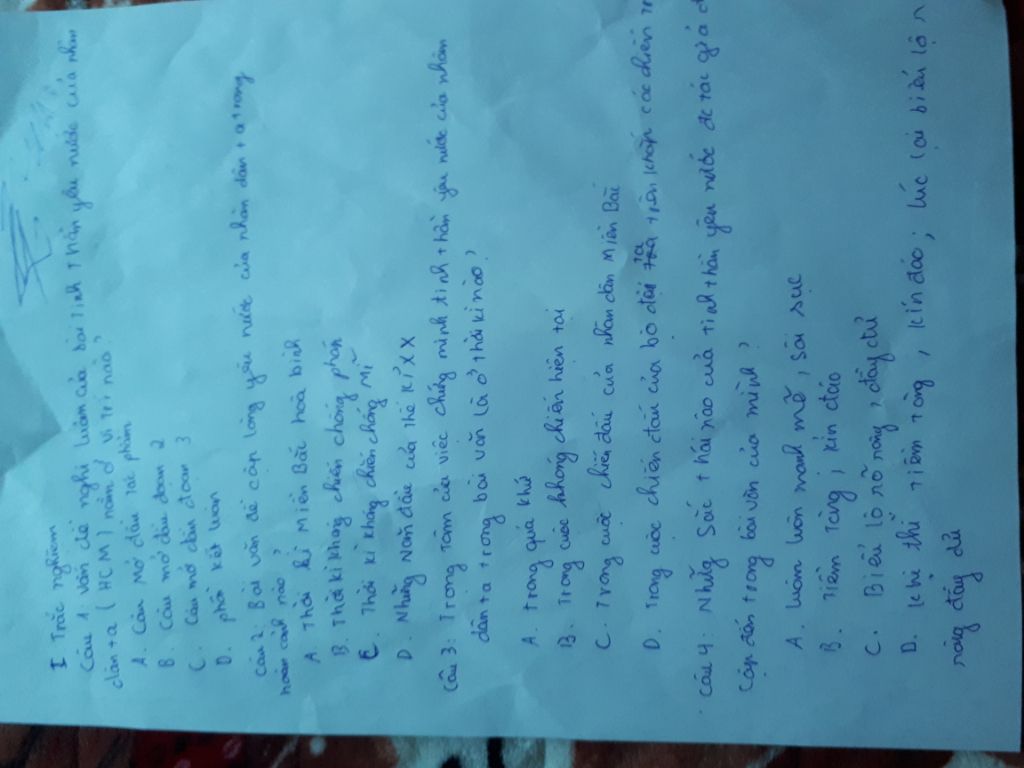 I Trắc nghiệm
Câu 1 vấn đề nghị luận của bài Tinh thần yêu nước của nhân
dân ta (HCM) nằm ở vị trí nào?
A. Câu mở đầu tác phẩm
B. Câu mở đầu đoạn 2
C. Câu mở đầu đoạn 3
D. phần kết luận
Câu 2: Bài văn đề cập lòng yêu nước của nhân dân ta trong
hoàn cảnh nào?
A. Thời kì Miền Bắc hoà bình
B. Thời kì kháng chiến chống pháp
C. Thời kì kháng chiến chống Mĩ
D. Những Năm đầu của thế kỉ XX
Câu 3: Trọng tâm của việc chứng minh tinh thần yêu nước của nhân
dân ta trong bài văn là ở thời kì nào?
A. trong quá khứ
B. Trong cuộc kháng chiến hiện tại
C. Trong cuộc chiến đấu của nhân dân Miền Bắc
D. Trong cuộc chiến đấu của bộ đội ta trên khắp các chiến
Câu 4: Những Sắc thái nào của tinh thần yêu nước đc tác giả
cập đến trong bài văn của mình?
A. luôn luôn mạnh mẽ, sôi sục
B. Tiềm tàng, kín đáo
C. Biểu lộ rõ ràng, đầy đủ
D. Khi thì tiềm tàng, kín đáo; lúc lại biểu lộ
ràng đầy đủ